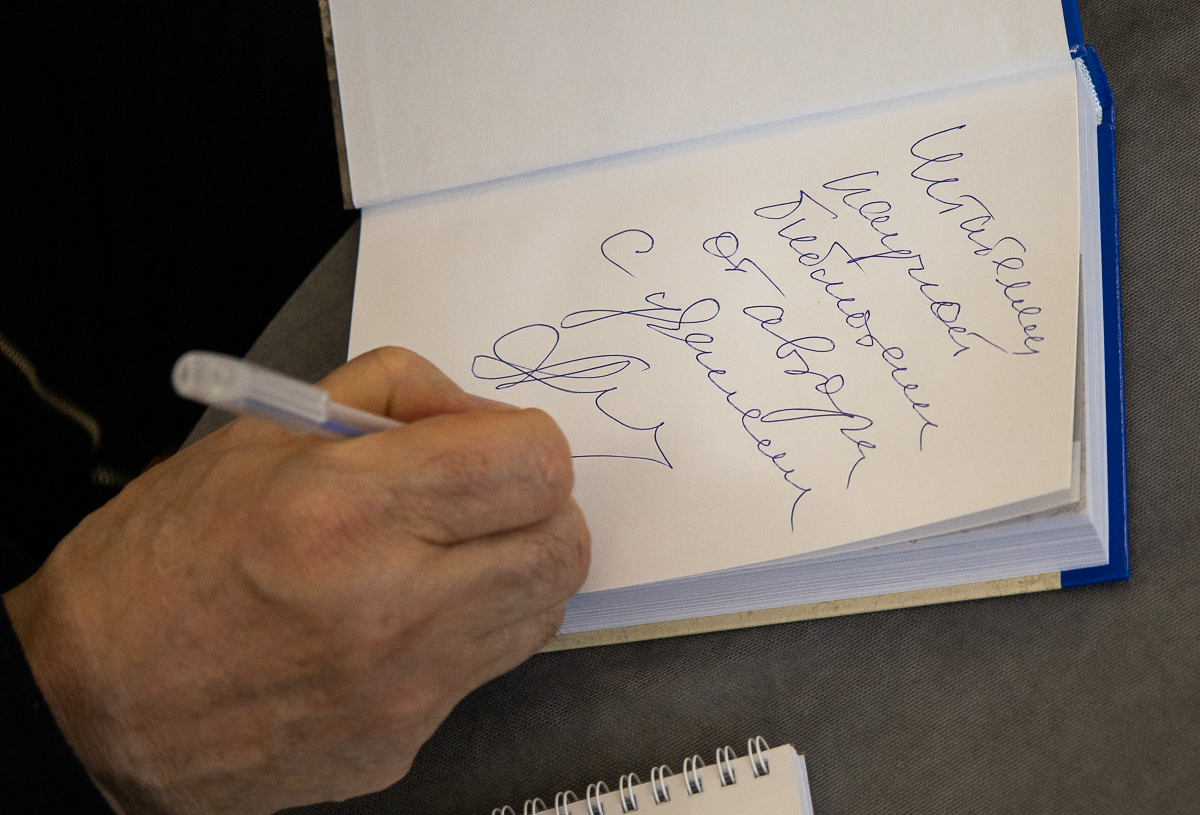 Читателям
научной
библиотеки
от автора
С уважением